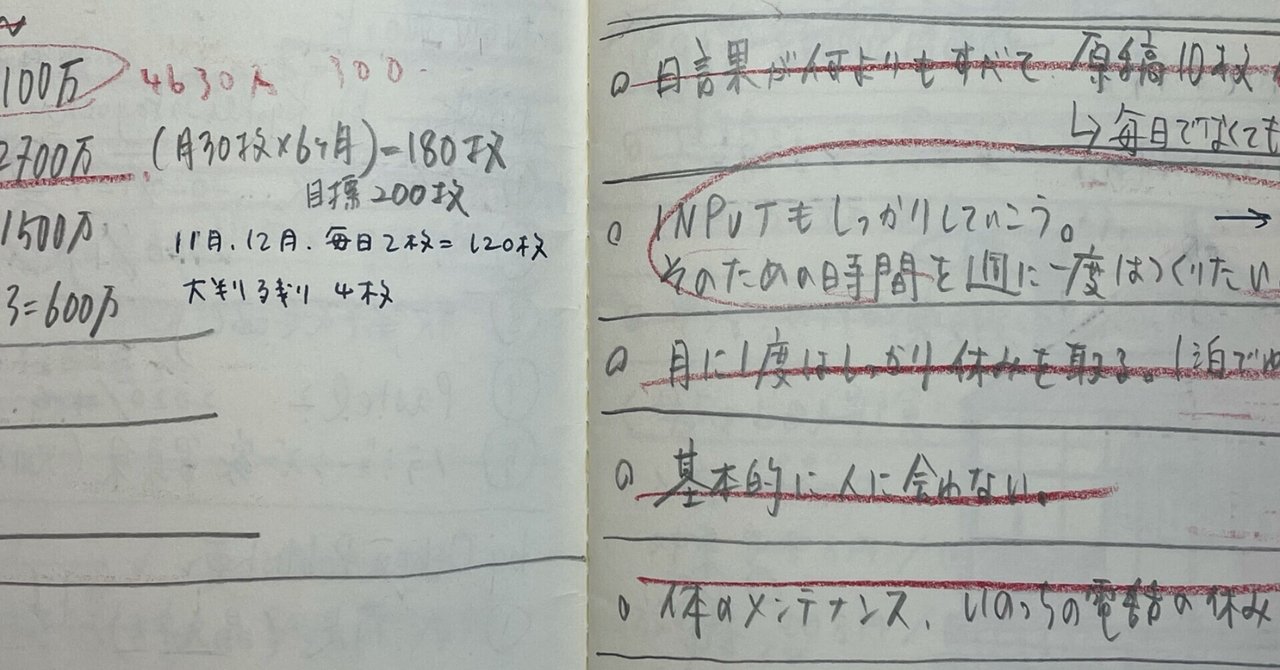 100万 4630人 300
2700万 (月30枚×6ヶ月)=180枚
目標200枚
1500万 11月、12月、毎日2枚=120枚
大判残り 4枚
3=600万
○ 日課が何よりもすべて、原稿10枚
↳毎日でなくても
○ INPUTもしっかりしていこう。 →
そのための時間を1週に一度はつくりたい
○ 月に1度はしっかり休みを取る。1泊で
○ 基本的に人に会わない。
○ 体のメンテナンス、いのっちの電話の休み